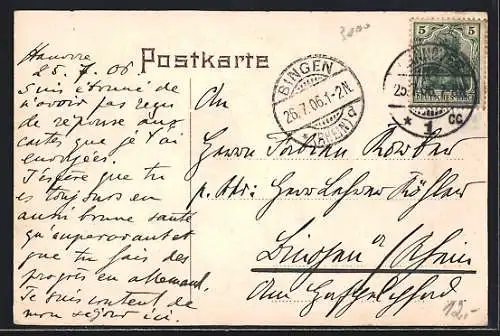 Hanovre
25. 7. 06.
Suis étonné de
n'avoir pas reçu
de réponse aux
cartes que je t'ai
envoyées.
J'espère que tu
es toujours en
aussi bonne santé
qu'auparavant et
que tu fais des
progrès en allemand.
Je suis content de
mon séjour ici.
Postkarte
3000
5 5
25.7.06.
* 1 CC
BINGEN
26.7.06.1-2N.
* (RHEIN) d
An
Herrn Fabian
p. Adr: Herrn Lehrer Köhler
Bingen a/Rhein
Am
12,-